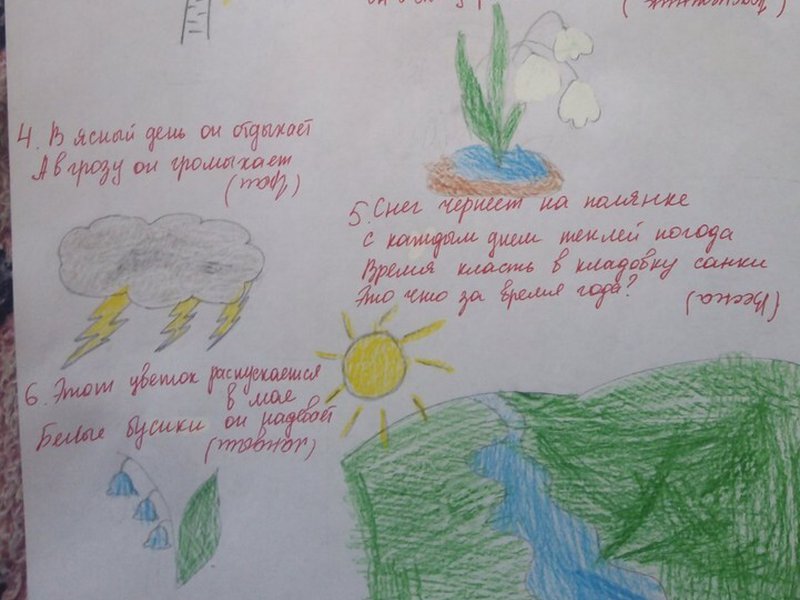 4. В ясный день он отдыхает
А в грозу он громыхает
(Гром)
5. Снег чернеет на полянке
С каждым днем теплей погода
Время класть в кладовку санки
Это что за время года?
(Весна)
6. Этот цветок распускается
в мае
Белые бусики он надевает